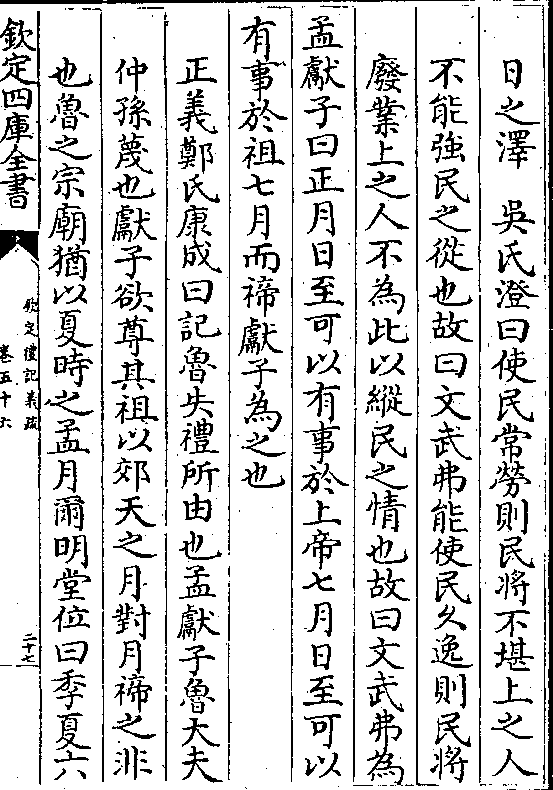 日之澤　吳氏澄曰使民常勞則民將不堪上之人
不能強民之從也故曰文武弗能使民久逸則民將
廢業上之人不為此以縱民之情也故曰文武弗為
孟獻子曰正月日至可以有事於上帝七月日至可以
有事於祖七月而禘獻子為之也
正義鄭氏康成曰記魯失禮所由也孟獻子魯大夫
仲孫蔑也獻子欲尊其祖以郊天之月對月禘之非
也魯之宗廟猶以夏時之孟月爾明堂位曰季夏六
欽定四庫全書
欽定禮記義疏
卷五十六
二十七